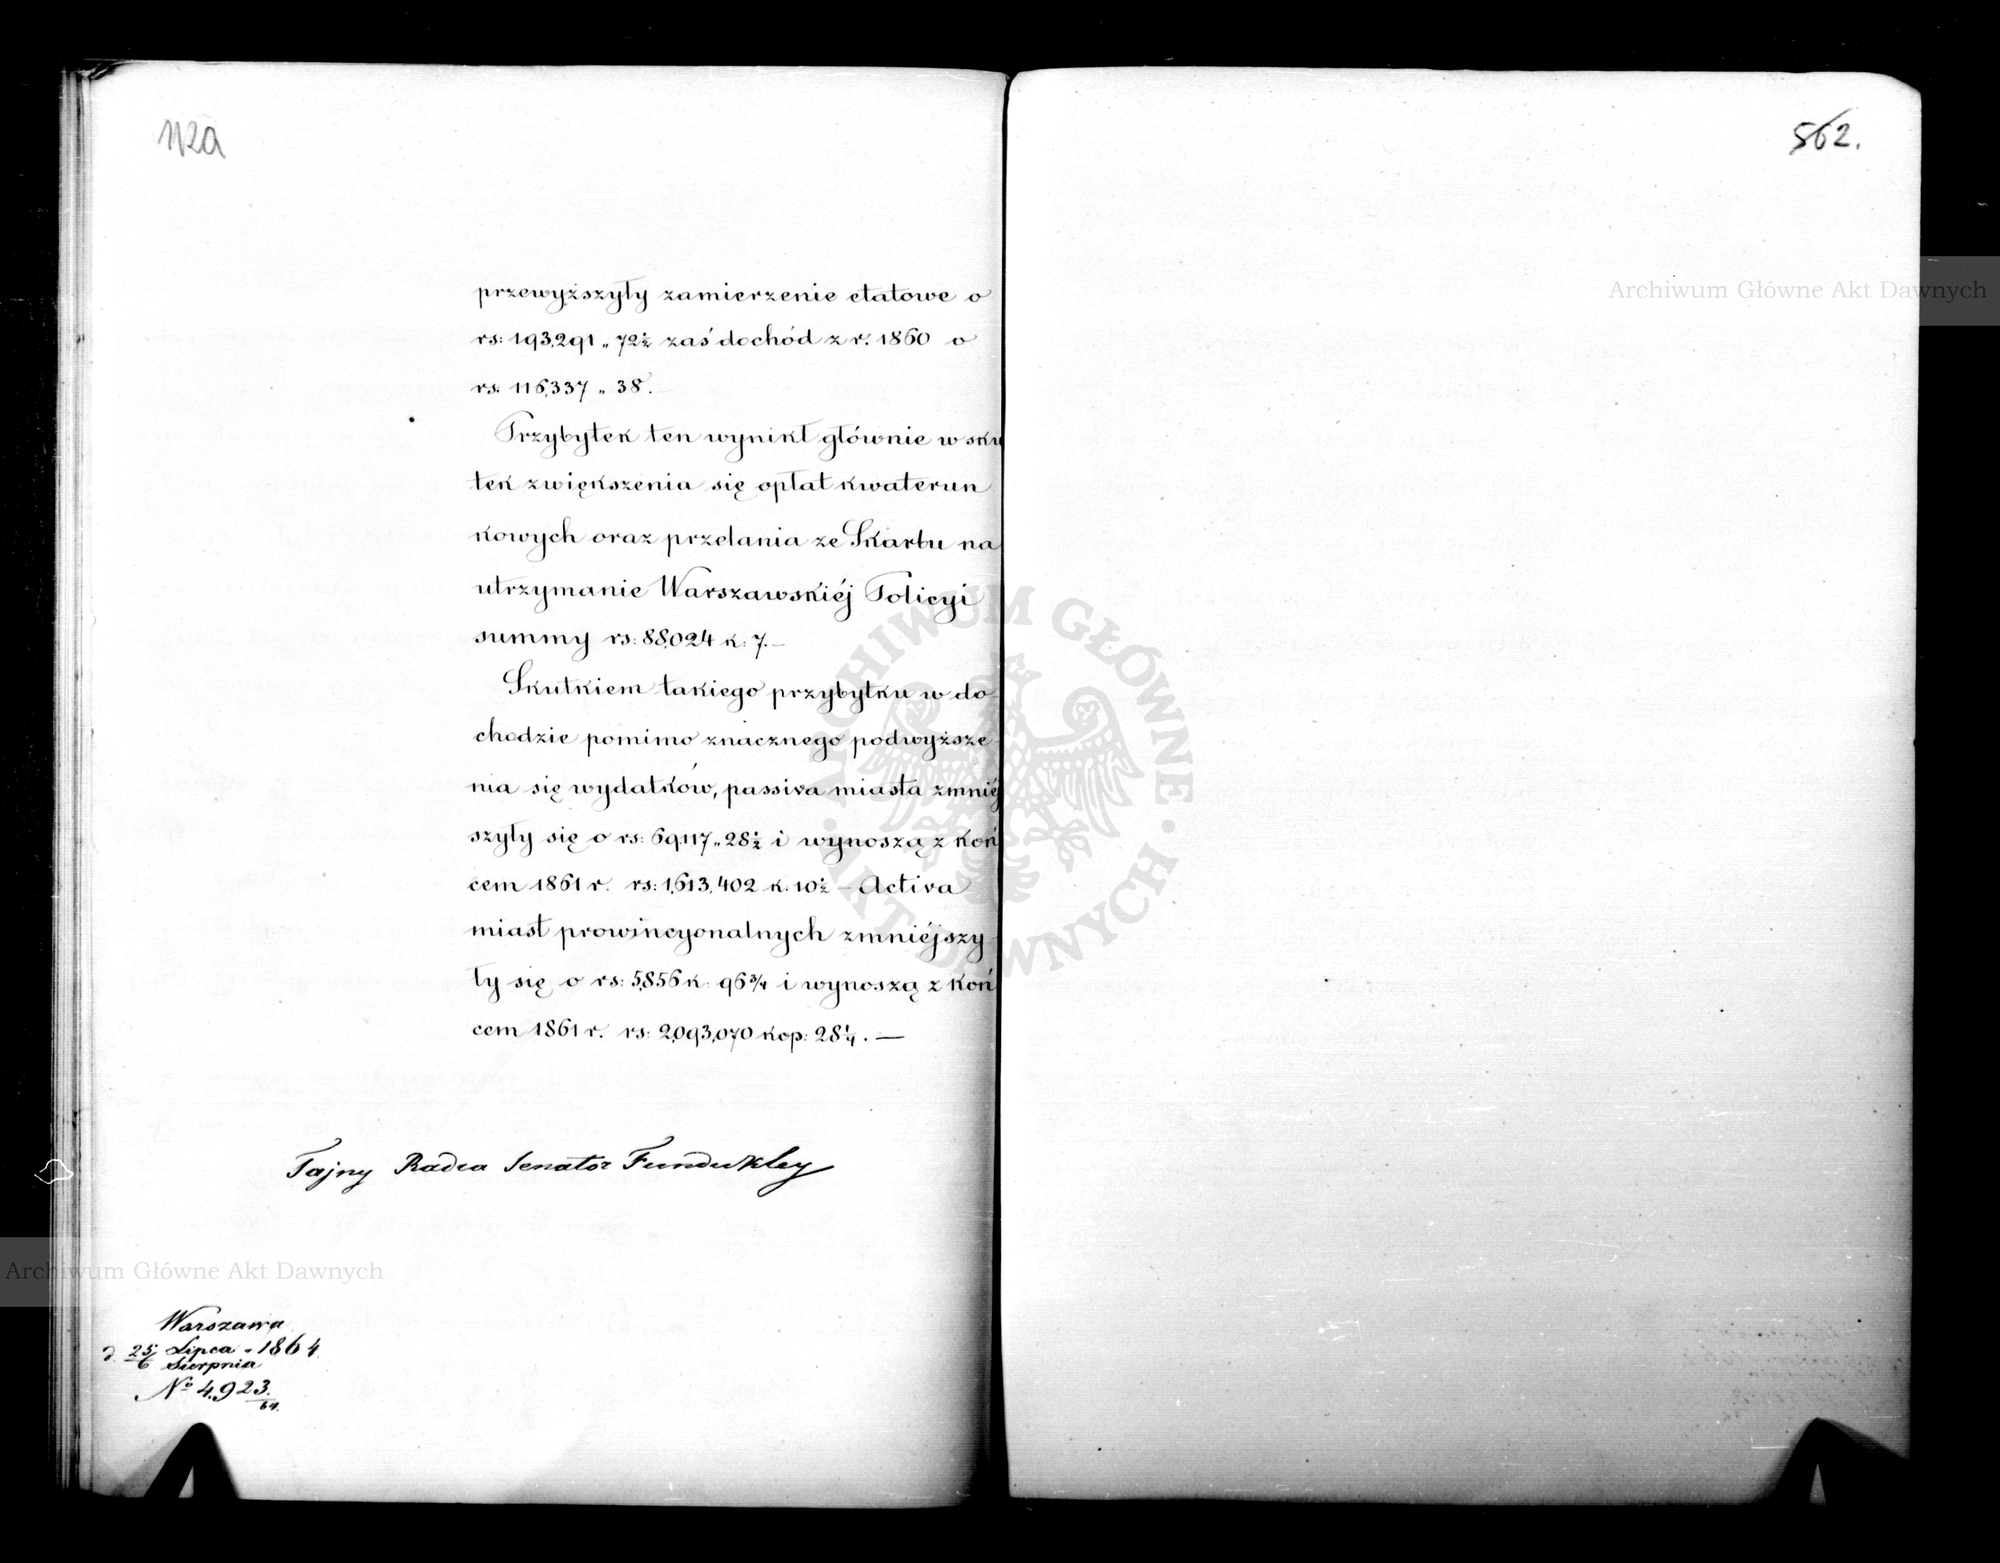 112a
przewyższyły zamierzenie etatowe o
rs: 193,291 „ 72½ zaś dochód z r. 1860 o
rs: 116,337 „ 38.
Przybytek ten wynikł głównie w sku
tek zwiększenia się opłat kwaterun
kowych oraz przelania ze Skarbu na
utrzymanie Warszawskiéj Policyi
summy rs: 88,024 k: 7.—
Skutkiem takiego przybytku w do-
chodzie pomimo znacznego podwyższe-
nia się wydatków, passiva miasta zmniéj
szyły się o rs: 69,117 „ 28½ i wynoszą z koń
cem 1861 r. rs: 1,613,402 k. 10½ — Activa
miast prowincyonalnych zmniéjszy-
ły się o rs: 5,856 k: 96¾ i wynoszą z koń
cem 1861 r. rs: 2,093,070 kop: 28¼. —
Tajny Radca Senator Fundukley
Warszawa
d. 25/6 Lipca/Sierpnia 1864.
No 4,923/64.
562.
Archiwum Główne Akt Dawnych
Archiwum Główne Akt Dawnych
ARCHIWUM GŁÓWNE AKT DAWNYCH